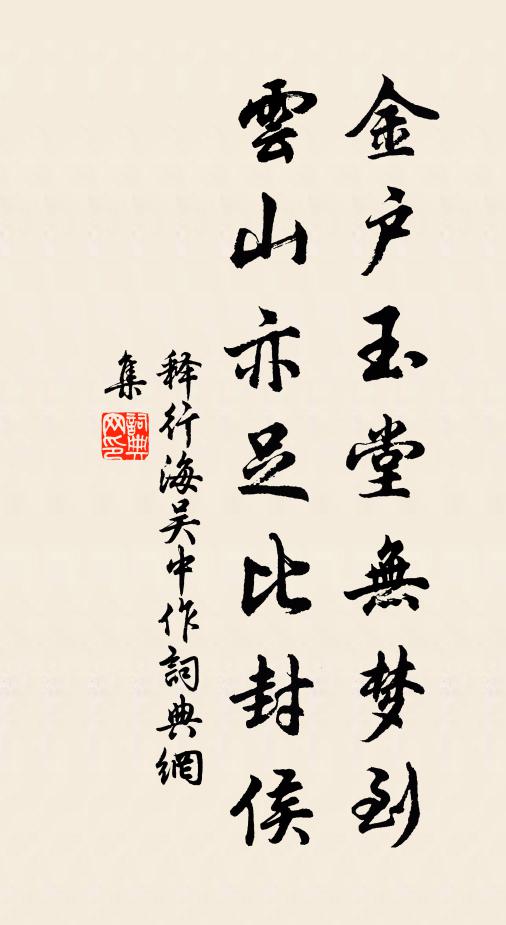 金户玉堂無梦到
雲山亦足比封侯
释行海吴中作詞典網
集
詞典
网印